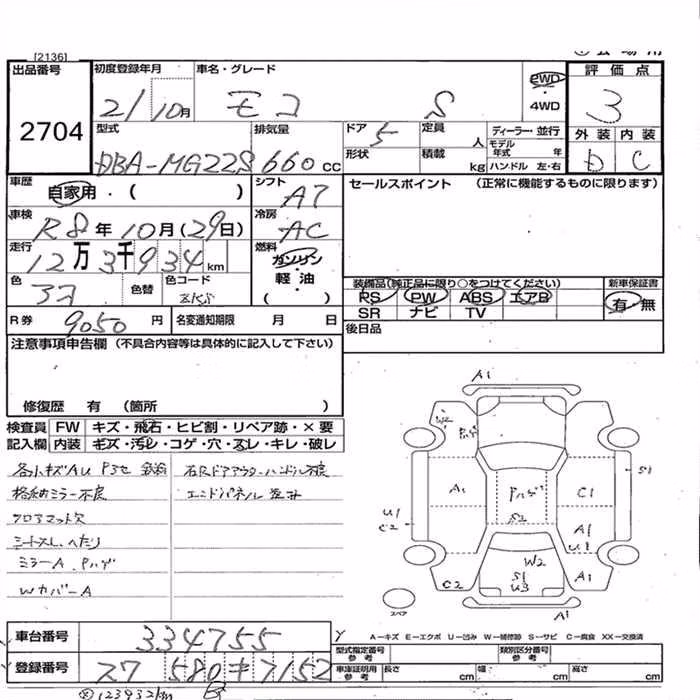 [2136]
出品番号
2704
初度登録年月
21/10月
車名・グレード
モコ S
2WD
・
4WD
評価点
3
型式
DBA-MG22S
排気量
660 cc
ドア 5
形状
定員 人
積載 kg
ディーラー・並行
モデル年式 年
ハンドル 左・右
外装 内装
D C
車歴
自家用・( )
シフト
AT
セールスポイント (正常に機能するものに限ります)
車検
R8年10月(29日)
冷房
AC
走行
12万3千934km
燃料
ガソリン
・
軽油
( )
色
色替
色コード
装備品(純正品に限り○をつけてください)
新車保証書
PS PW ABS エアB
有・無
SR ナビ TV
R券
9050円
名変通知期限 月 日
後日品
注意事項申告欄 (不具合内容等は具体的に記入して下さい)
修復歴 有 (箇所 )
検査員
記入欄
FW キズ・飛石・ヒビ割・リペア跡・×要
内装 キズ・汚レ・コゲ・穴・スレ・キレ・破レ
各小キズAU
格納ミラー不良
フロアマット穴
シートスレ、ヘたり
ミラーA、ハゲ
WカバーA
右Rドアアウターハンドル不良
エンドパネル
A1
W2
A1
S2
C1
S1
U1
C2
A1
U1
W2
S1
U3
C2
A1
A1
スペア
A−キズ E−エクボ U−凹み W−補修跡 S−サビ C−腐食 XX−交換済
車台番号
334755
登録番号
580 7152
型式指定番号
参考
類別区分番号
参考
車庫証明用
参考
長さ cm
幅 cm
高さ cm
123932km